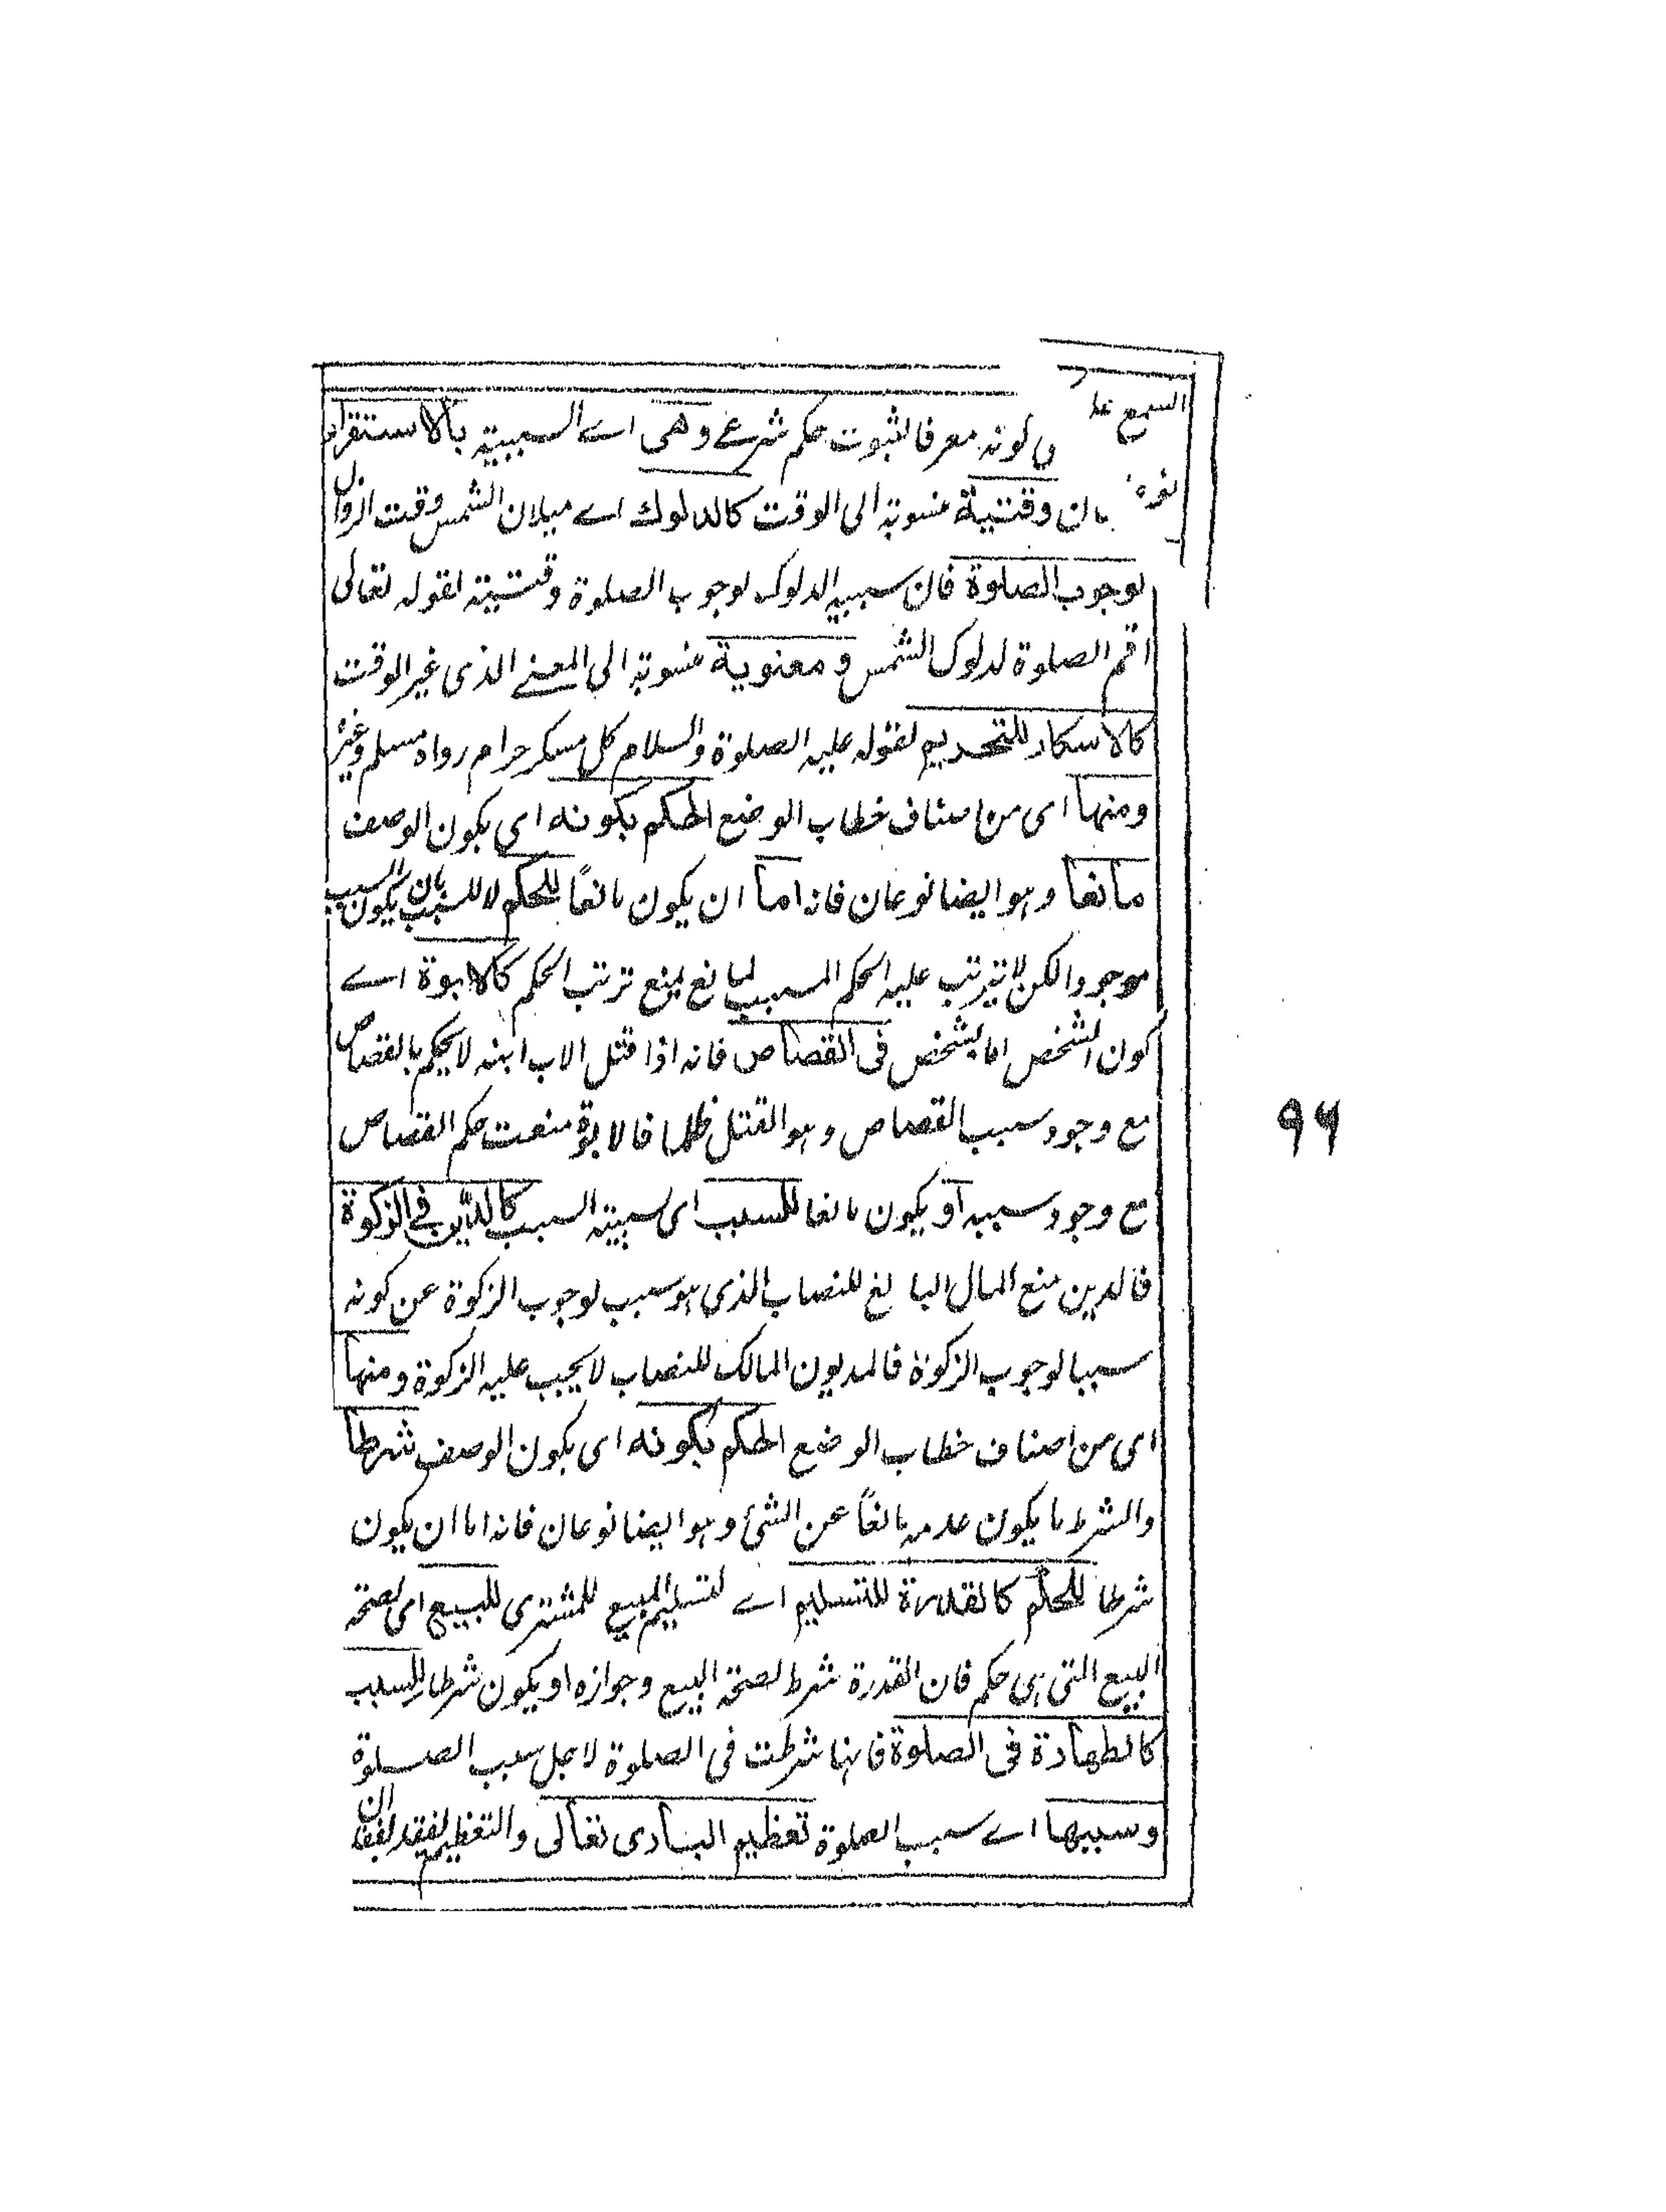 السمع علے
كونه معرفا لثبوت حكم شرعے وهى اے السببية بالاستقراء
وقتية منسوبة الى الوقت كالدلوك اے ميلان الشمس وقت الزوال
لوجوب الصلوة فان سببية الدلوك لوجوب الصلوة وقتية لقوله تعالى
اقم الصلوة لدلوك الشمس ومعنوية منسوبة الى المعنے الذى غير الوقت
كالاسكار للتحريم لقوله عليه الصلوة والسلام كل مسكر حرام رواه مسلم وغيره
ومنها اى من اصناف خطاب الوضع الحكم بكونه اى بكون الوصف
مانعا وهو ايضا نوعان فانه اما ان يكون مانعًا للحكم لا للسبب بان يكون السبب
موجودا لكن لا يترتب عليه الحكم المسبب لمانع يمنع ترتب الحكم كالابوة اے
كون الشخص ابا لشخص فى القصاص فانه اذا قتل الاب ابنه لا يحكم بالقصاص
مع وجود سبب القصاص وهو القتل ظلما فالابوة منعت حكم القصاص
مع وجود سببه او يكون مانعا للسبب اى سببية السبب كالدين فے الزكوة
فالدين منع المال البالغ للنصاب الذى هو سبب لوجوب الزكوة عن كونه
سببا لوجوب الزكوة فالمديون المالك للنصاب لا يجب عليه الزكوة ومنها
اى من اصناف خطاب الوضع الحكم بكونه اى بكون الوصف شرطا
والشرط ما يكون عدمه مانعاً عن الشئ وهو ايضا نوعان فانه اما ان يكون
شرطا للحكم كالقدرة للتسليم اے لتسليم المبيع للمشترى للبيع اى لصحة
البيع التى هى حكم فان القدرة شرط لصحة البيع وجوازه او يكون شرطا للسبب
كالطهارة فى الصلوة فانها شرطت فى الصلوة لاجل سبب الصلوة
وسببها اے سبب الصلوة تعظيم البارى تعالى والتعظيم يفقد لفقدان
٩٦